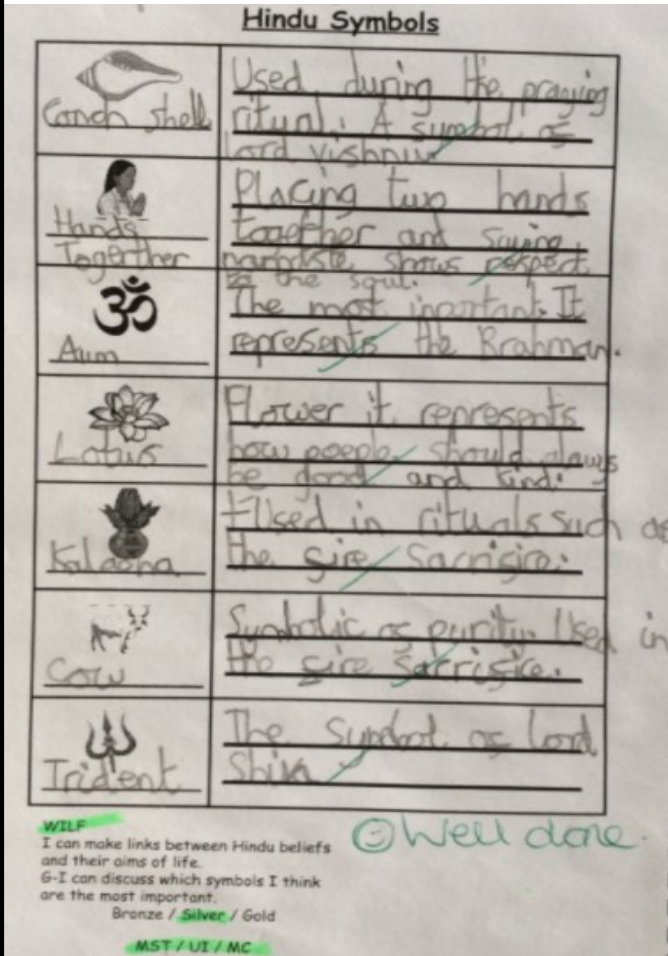 Hindu Symbols
Conch shell
Used during the praying
ritual. A symbol of
Lord vishnu
Hands
Togerther
Placing two hands
together and saying
namaste shows respect
to the soul.
Aum
The most inportant. It
represents the Brahman.
Lotus
Flower it represents
how poeple should always
be good and kind.
Kalasha
Used in rituals such as
the fire Sacrifice.
Cow
Symbolic of purity. Used in
the fire sacrifice.
Trident
The symbol of lord
Shiva
WILF
I can make links between Hindu beliefs
and their aims of life.
G-I can discuss which symbols I think
are the most important.
Bronze / Silver / Gold
MST / UI / MC
Well done.